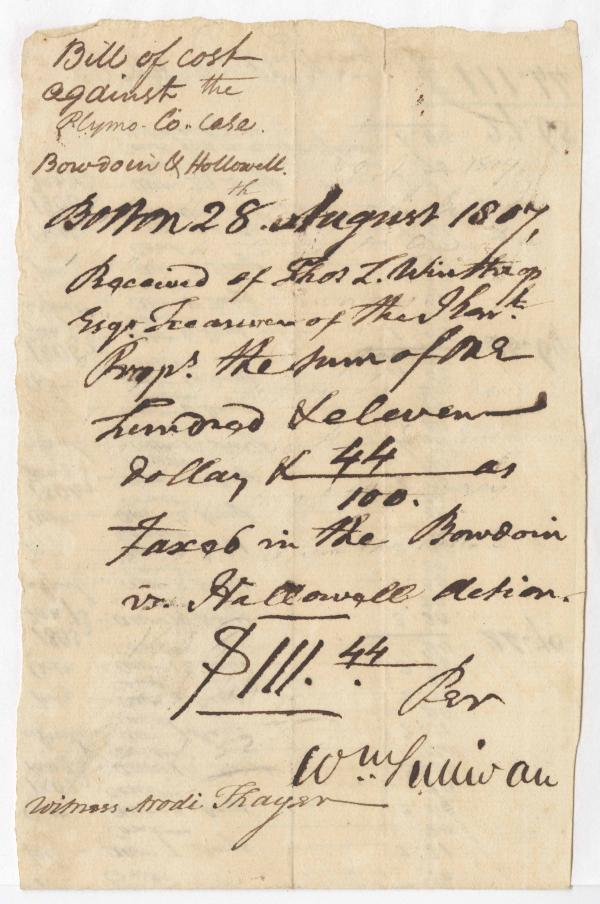 Bill of cost
against the
Plymo. Co. case.
Bowdoin & Hollowell.
Boston 28th August 1807,
Received of Thos L. Winthrop
Esqr. Treasurer of the
Props. the sum of one
hundred & eleven
dollars & 44/100. as
Taxed in the Bowdoin
vs. Hallowell action.
$111.44
Per
Wm Sullivan
Witness Arodi Thayer